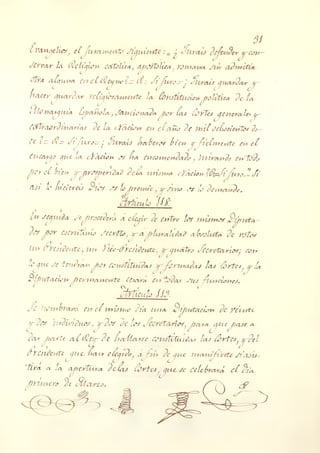 31
Evangelios, el juramento siguiente: = ¿Jurais defender y con-
servar la Religion católica, apostólica, romana sin admitir
otra alguna en el Reyno? = R. Si juro = ¿Jurais guardar y
hacer guardar religiosamente la Constitucion política de la
Monarquía Española, sancionada por las Cortes generales y
extraordinarias de la Nacion en el año de mil ochocientos do-
ce? = R = Si juro = ¿Jurais haberos bien y fielmente en el
encargo que la Nacion os ha encomendado, mirando en todo
por el bien y prosperidad de la misma Nacion? R = Si juro = Si
así lo hiciereis Dios os lo premie, y sino os lo demande.
Artículo 118.
En seguida se procederá á elegir de entre los mismos Diputa-
dos por escrutinio secreto, y á pluralidad absoluta de votos
un Presidente, un Vice-Presidente, y quatro Secretarios; con
lo que se tendrán por constituidas y formadas las Cortes, y la
Diputacion permanente cesará en todas sus funciones.
Artículo 119.
Se nombrará en el mismo dia una Diputacion de veinte
y dos individuos, y dos de los Secretarios, para que pase á
dar parte al Rey de hallarse constituidas las Cortes, y del
Presidente que han elegido, á fin de que manifieste si asis-
tirá á la apertura de las Cortes, que se celebrará el dia
primero de Marzo.